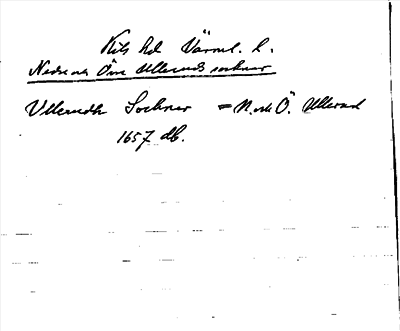 Kils hd Värml. l.
Nedre och Övre Ulleruds socknar
Ulleruds Sochner = N. och Ö. Ullerud
1657 db.